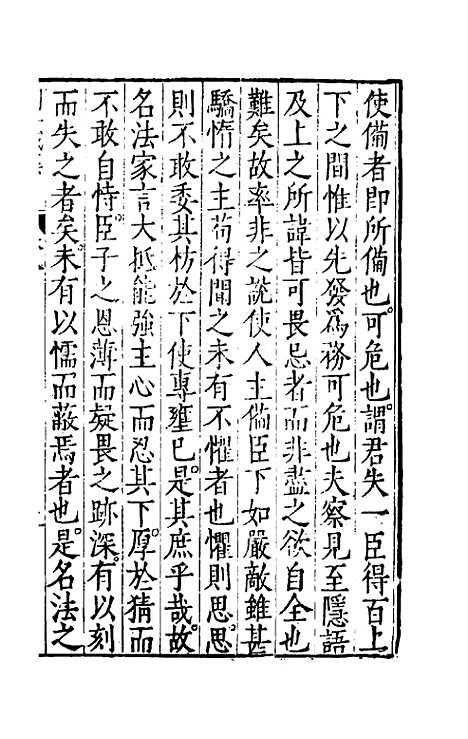 使備者即所備也。可危也。謂君失一臣得百上
下之間惟以先發爲務可危也夫察見至隱語
及上之所諱皆可畏忌者而非盡之欲自全也
難矣故率非之説使人主備臣下如嚴敵雖甚
驕惰之主苟得聞之未有不懼者也懼則思。思
則不敢委其枋於下使專壅已。是其庶乎哉。故
名法家言大抵能強主心而忍其下。厚於猜而
不敢自恃。臣子之恩薄而疑畏之跡深。有以刻
而失之者矣。未有以懦而蔽焉者也。是名法之